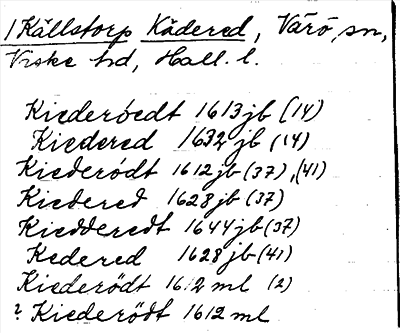 1 Källstorp Kädered, Värö sn,
Viske hd, Hall. l.
Kiederöedt 1613 jb (14)
Kiedered 1632 jb (14)
Kiederödt 1612 jb (37), (41)
Kiedered 1628 jb (37)
Kiedderedt 1644 jb (37)
Kedered 1628 jb (41)
Kiederödt 1612 ml (2)
? Kiederödt 1612 ml